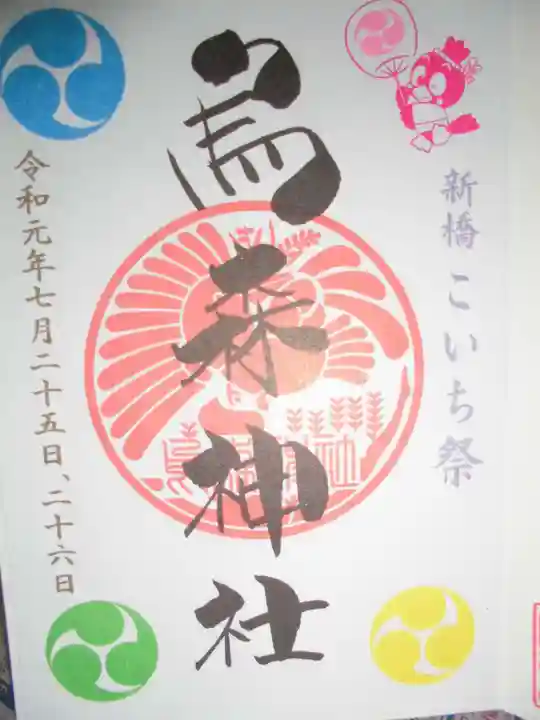 新橋こいち祭
烏森神社
令和元年七月二十五日、二十六日